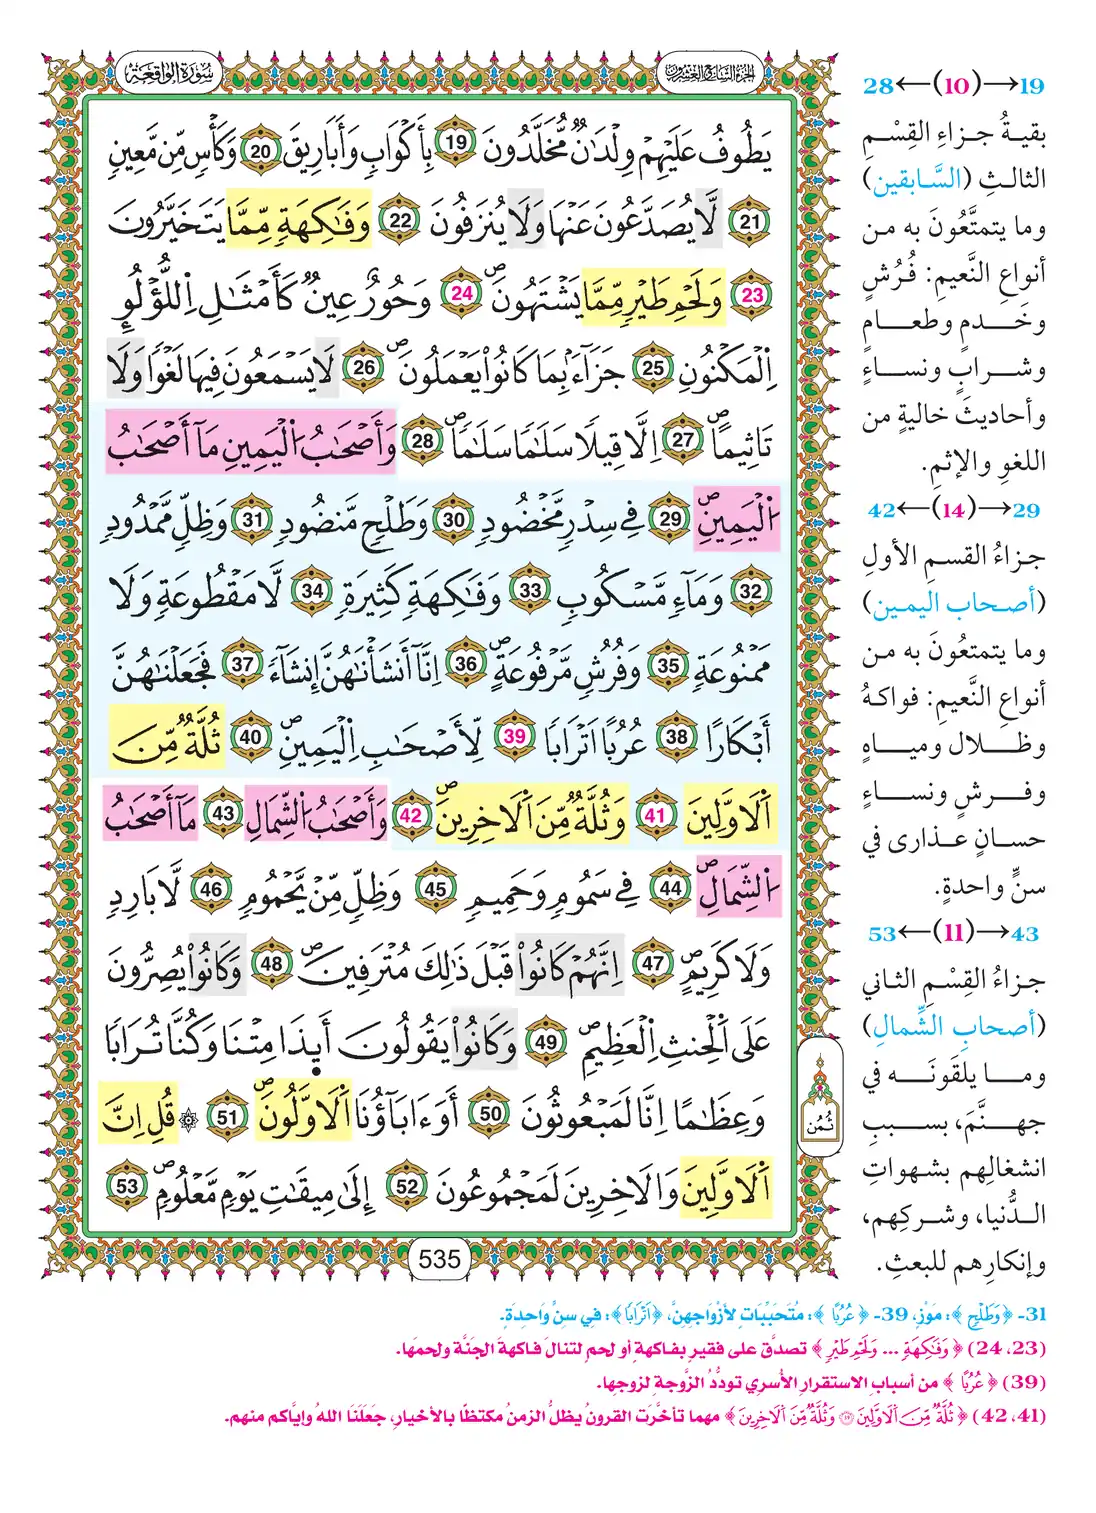 سُورَةُ الوَاقِعَة
الجُزءُ السَّابِعُ وَالعِشْرُون
يَطُوفُ عَلَيْهِمْ وِلْدَٰنٌ مُّخَلَّدُونَ 19 بِأَكْوَابٍ وَأَبَارِيقَ 20 وَكَأْسٍ مِّن مَّعِينٍ
21 لَّا يُصَدَّعُونَ عَنْهَا وَلَا يُنزَفُونَ 22 وَفَٰكِهَةٍ مِّمَّا يَتَخَيَّرُونَ
23 وَلَحْمِ طَيْرٍ مِّمَّا يَشْتَهُونَ 24 وَحُورٌ عِينٌ كَأَمْثَٰلِ اِللُّؤْلُوِٕ
اِلْمَكْنُونِ 25 جَزَآءَۢ بِمَا كَانُواْ يَعْمَلُونَ 26 لَا يَسْمَعُونَ فِيهَا لَغْوًا وَلَا
تَاثِيمًا 27 اِلَّا قِيلًا سَلَٰمًا سَلَٰمًا 28 وَأَصْحَٰبُ اُلْيَمِينِ مَآ أَصْحَٰبُ
اُلْيَمِينِ 29 فِي سِدْرٍ مَّخْضُودٍ 30 وَطَلْحٍ مَّنضُودٍ 31 وَظِلٍّ مَّمْدُودٍ
32 وَمَآءٍ مَّسْكُوبٍ 33 وَفَٰكِهَةٍ كَثِيرَةٍ 34 لَّا مَقْطُوعَةٍ وَلَا
مَمْنُوعَةٍ 35 وَفُرُشٍ مَّرْفُوعَةٍ 36 اِنَّآ أَنشَأْنَٰهُنَّ إِنشَآءً 37 فَجَعَلْنَٰهُنَّ
أَبْكَارًا 38 عُرُبًا اَتْرَابًا 39 لِّأَصْحَٰبِ اِلْيَمِينِ 40 ثُلَّةٌ مِّنَ
اَلَاوَّلِينَ 41 وَثُلَّةٌ مِّنَ اَلَاخِرِينَ 42 وَأَصْحَٰبُ اُلشِّمَالِ 43 مَآ أَصْحَٰبُ
اُلشِّمَالِ 44 فِي سَمُومٍ وَحَمِيمٍ 45 وَظِلٍّ مِّنْ يَّحْمُومٍ 46 لَّا بَارِدٍ
وَلَا كَرِيمٍ 47 اِنَّهُمْ كَانُواْ قَبْلَ ذَٰلِكَ مُتْرَفِينَ 48 وَكَانُواْ يُصِرُّونَ
عَلَى اَلْحِنثِ اِلْعَظِيمِ 49 وَكَانُواْ يَقُولُونَ أَيِذَا مِتْنَا وَكُنَّا تُرَابًا
وَعِظَٰمًا اِنَّا لَمَبْعُوثُونَ 50 أَوَءَابَآؤُنَا اَلَاوَّلُونَ 51 ۞ قُلِ اِنَّ
اَلَاوَّلِينَ وَالَاخِرِينَ لَمَجْمُوعُونَ 52 إِلَىٰ مِيقَٰتِ يَوْمٍ مَّعْلُومٍ 53
ثُمُن
535
19→(10)←28
بقيةُ جزاءِ القِسْمِ
الثالثِ (السَّابقين)
وما يتمتَّعُونَ به من
أنواعِ النَّعيمِ: فُرُشٍ
وخَدمٍ وطعامٍ
وشرابٍ ونساءٍ
وأحاديثَ خاليةٍ من
اللغوِ والإثمِ.
29→(14)←42
جزاءُ القسمِ الأولِ
(أصحاب اليمين)
وما يتمتعُونَ به من
أنواعِ النَّعيمِ: فواكهُ
وظلال ومياهٍ
وفرشٍ ونساءٍ
حسانٍ عذارى في
سنٍّ واحدةٍ.
43→(11)←53
جزاءُ القِسْمِ الثاني
(أصحابِ الشِّمالِ)
وما يلقَونَه في
جهنَّمَ، بسببِ
انشغالِهم بشهواتِ
الدُّنيا، وشركِهم،
وإنكارِهم للبعثِ.
31- ﴿وَطَلْحٍ﴾: مَوْزٍ، 39- ﴿عُرُبًا﴾: مُتَحَبِّبَاتٍ لأَزْوَاجِهِنَّ، ﴿اَتْرَابًا﴾: فِي سِنٍّ وَاحِدَةٍ.
(23، 24) ﴿وَفَٰكِهَةٍ ... وَلَحْمِ طَيْرٍ﴾ تصدَّق على فقيرٍ بفاكهةٍ أو لحمٍ لتنالَ فاكهةَ الجَنَّة ولحمَها.
(39) ﴿عُرُبًا﴾ من أسبابِ الاستقرارِ الأُسري تودُّدُ الزَّوجةِ لزوجِها.
(41، 42) ﴿ثُلَّةٌ مِّنَ اَلَاوَّلِينَ ۝ وَثُلَّةٌ مِّنَ اَلَاخِرِينَ﴾ مهما تأخَّرَت القرونُ يظلُّ الزمنُ مكتظًا بالأخيارِ، جعَلَنَا اللهُ وإيَّاكم منهم.